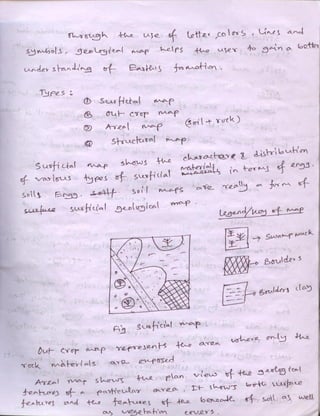 Through the use of letter, colors, lines and
symbols, geological map helps the user to gain a better
understanding of Earths formation.
Types :
① Surficial map
② Out crop map
③ Areal map (soil + rock)
④ Structural map.
Surficial map shows the character & distribution
of various types of surficial materials in terms of engg.
soils Engg. soil maps are really a form of
surficial geological map.
Legend/key of map
→ Swamp muck
→ Boulders
→ Boulders clay
Fig Surficial map
Out crop map represents the area where only the
rock materials are exposed
Areal map shows the plan view of the geological
features of a particular area. It shows both surface
features and the features of the beneath of soil as well
as vegetation covers.